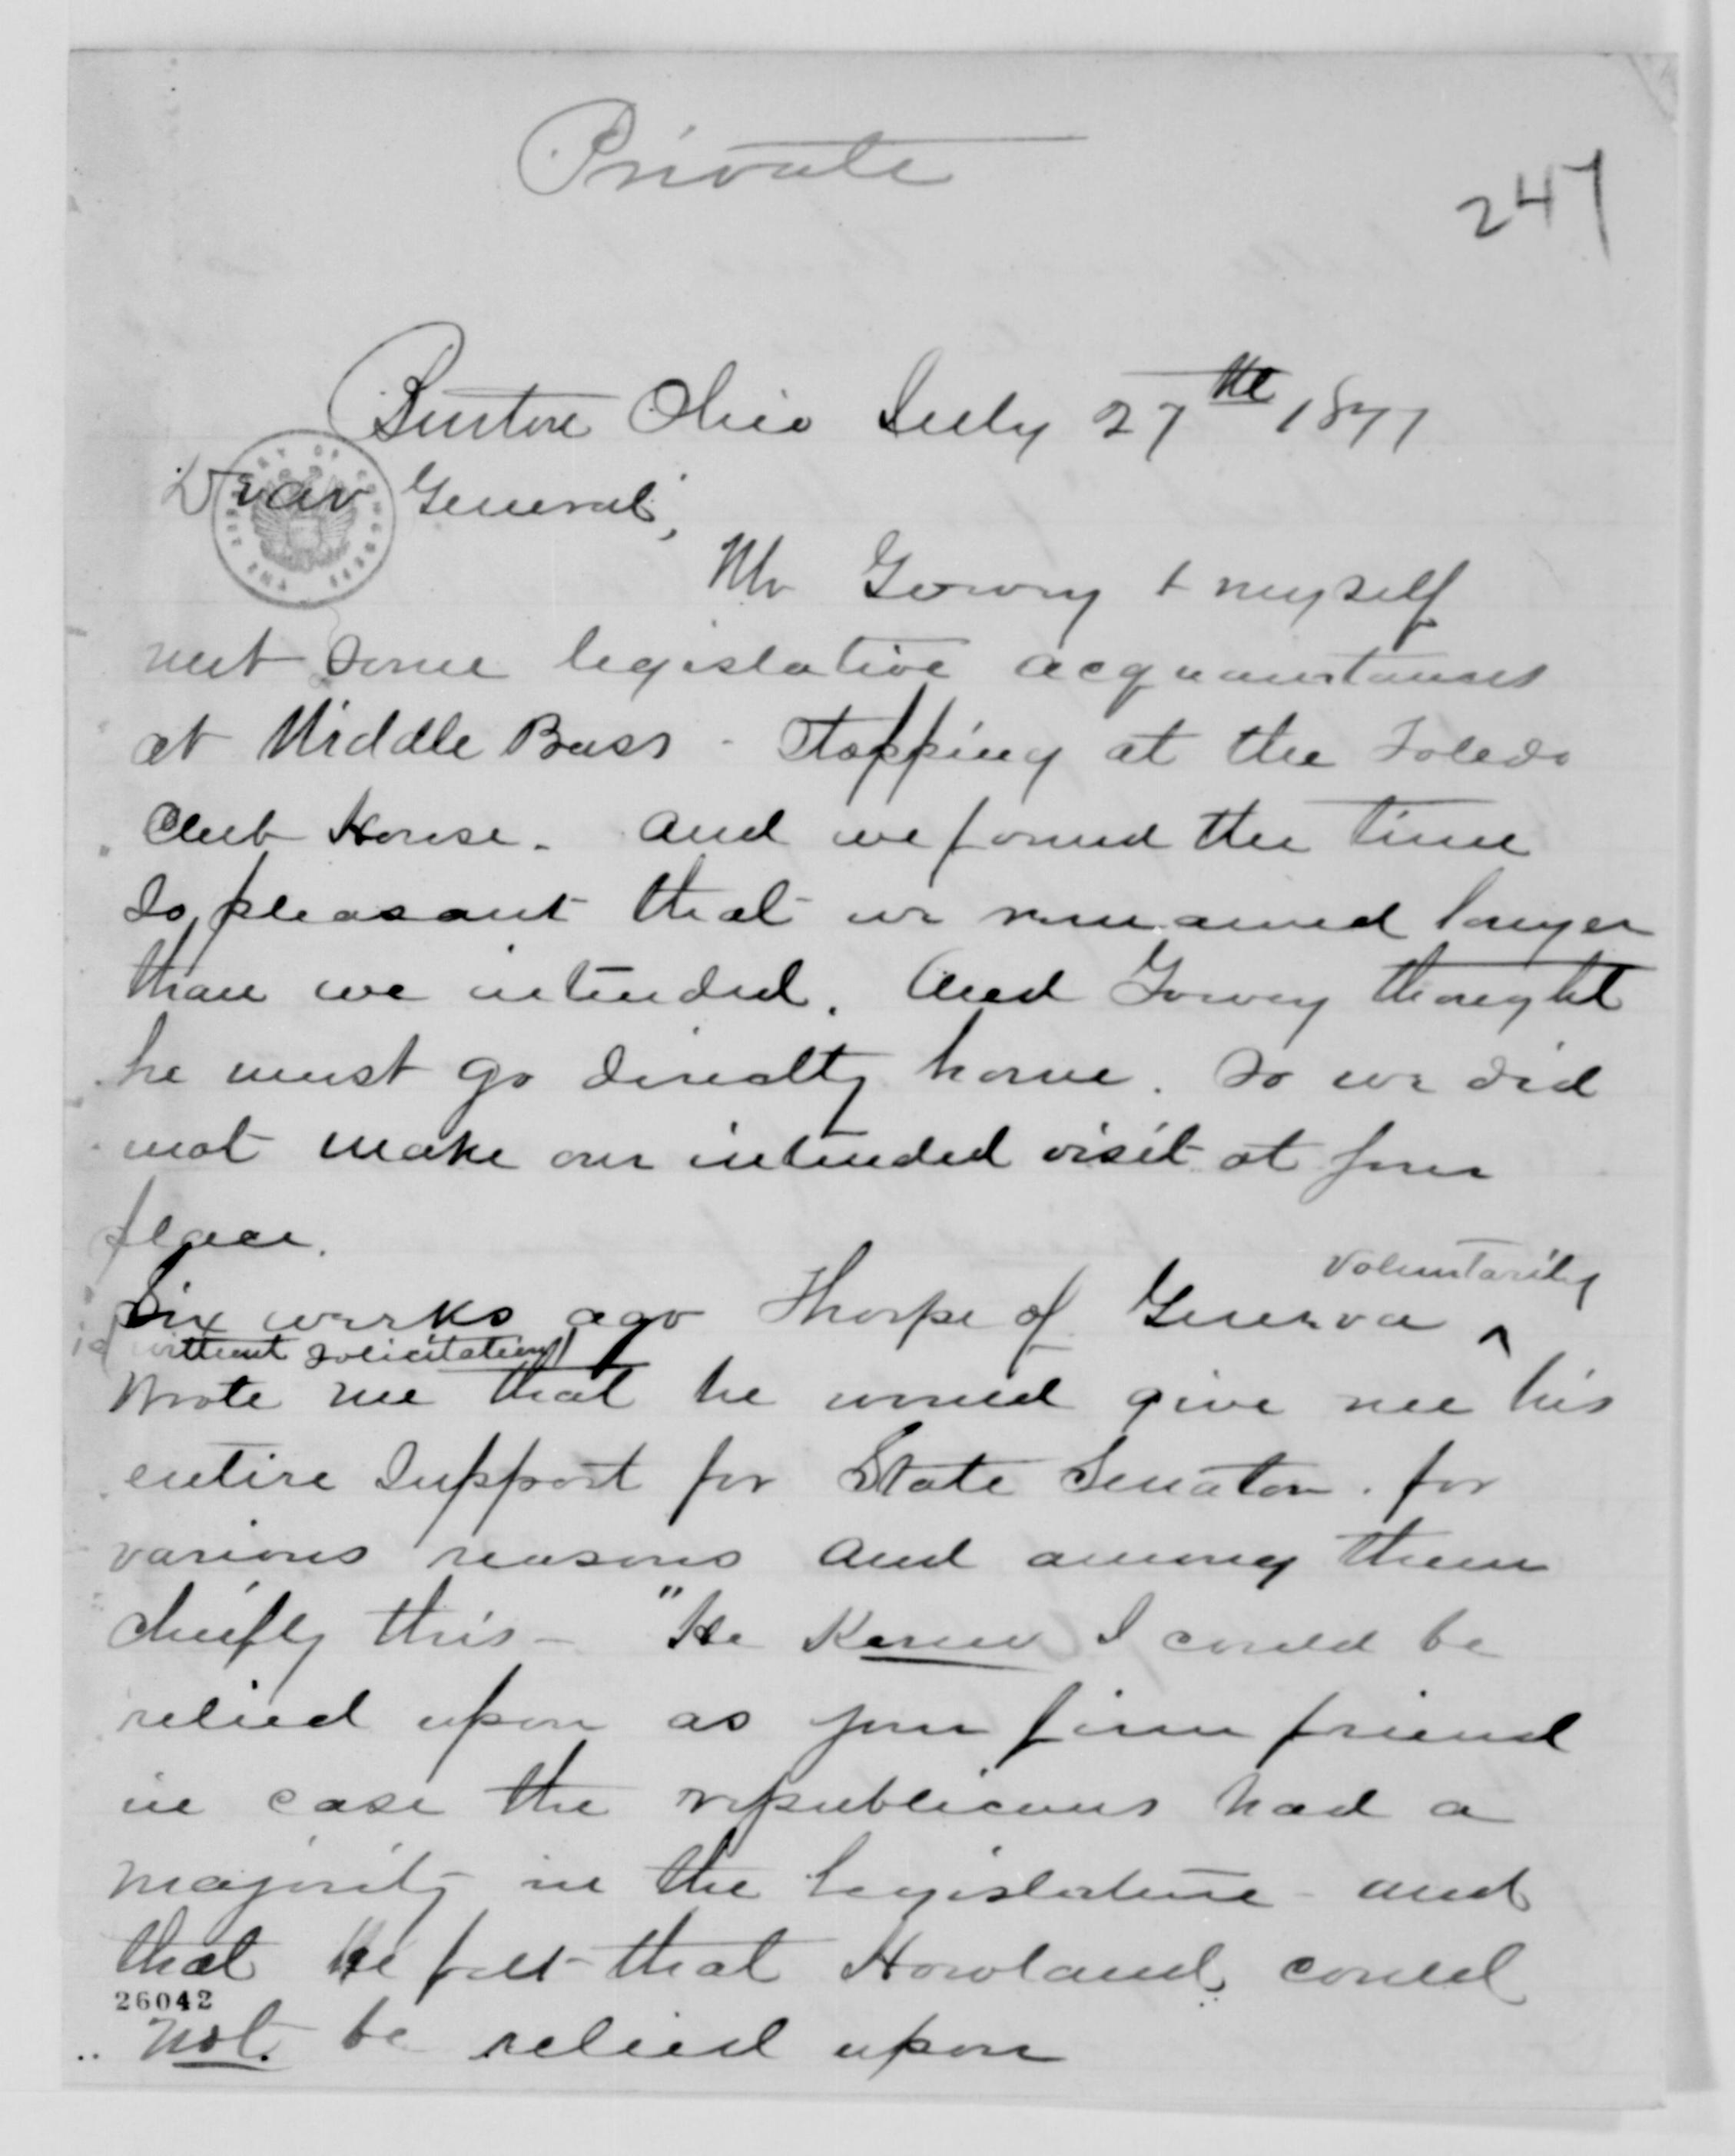 Private
247
Burton Ohio July 27th 1877
Dear General,
Mr Gowey & myself
met some legislative acquaintances
at Middle Bass - Stopping at the Toledo
Club House. and we found the time
so pleasant that we remained longer
than we intended. And Gowey thought
he must go directly home. So we did
not make our intended visit at your
place.
Six weeks ago Thorpe of Geneva ^ voluntarily
without solicitation
wrote me that he would give me his
entire support for State Senator. for
various reasons and among them
chiefly this - "He Knew I could be
relied upon as your firm friend
in case the republicans had a
majority in the legislature - and
that he felt that Howland could
26042
not be relied upon